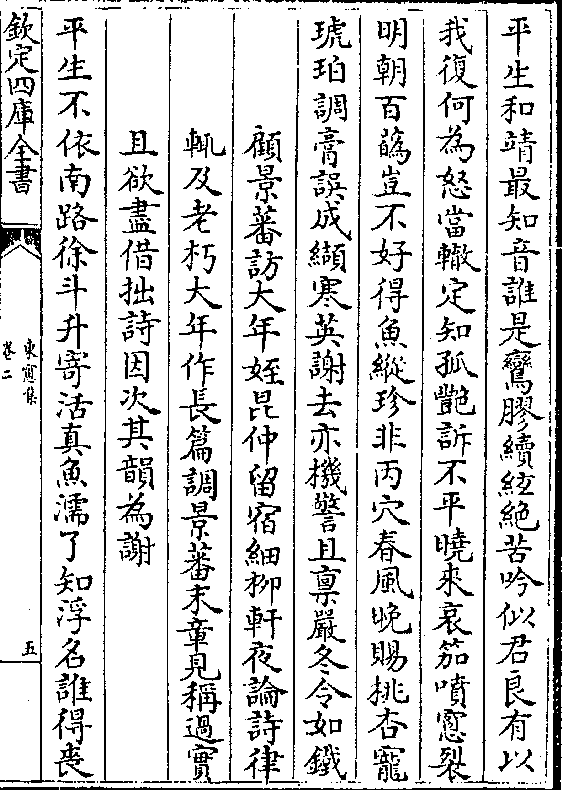 平生和靖最知音誰是鸞膠續絃絶苦吟似君良有以
我復何為怒當轍定知孤艶訴不平曉來哀笳噴窻裂
明朝百巵豈不好得魚縱珍非丙穴春風晚賜挑杏寵
琥珀調膏誤成纈寒英謝去亦機警且禀嚴冬令如鐵
顧景蕃訪大年姪昆仲留宿細柳軒夜論詩律
輒及老朽大年作長篇調景蕃末章見稱過實
且欲盡借拙詩因次其韻為謝
平生不依南路徐斗升寄活真魚濡了知浮名誰得喪
欽定四庫全書
東窻集
卷二
五